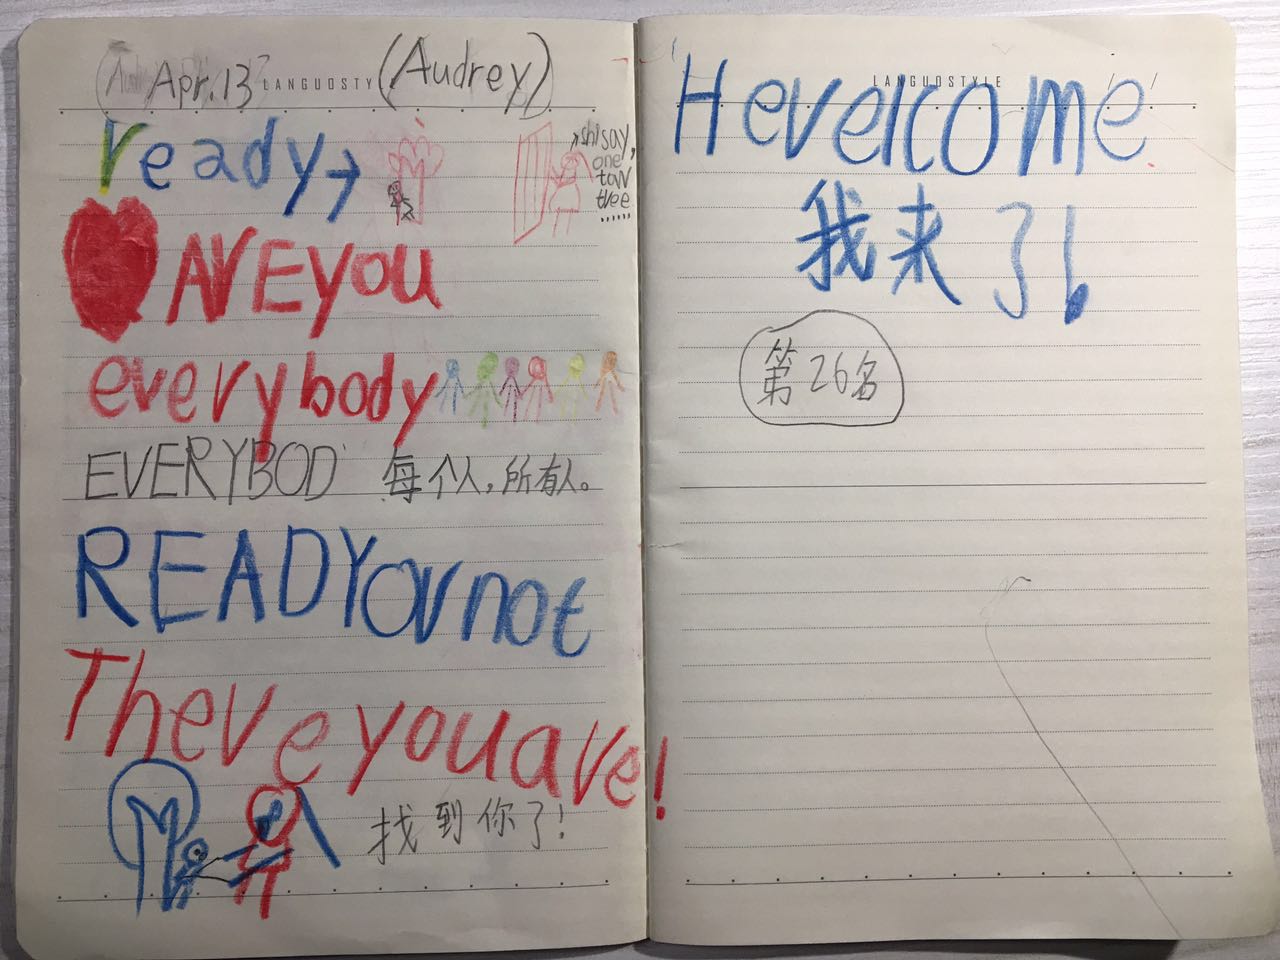 Apr.13 LANGUOSTY (Audrey)
ready
shi say,
one
tow
tree
......
AVE you
everybody
EVERYBOD 每个人，所有人。
READY or not
There you are!
找到你了！
LANGUOSTYLE
Herelcome
我来了！
第26名